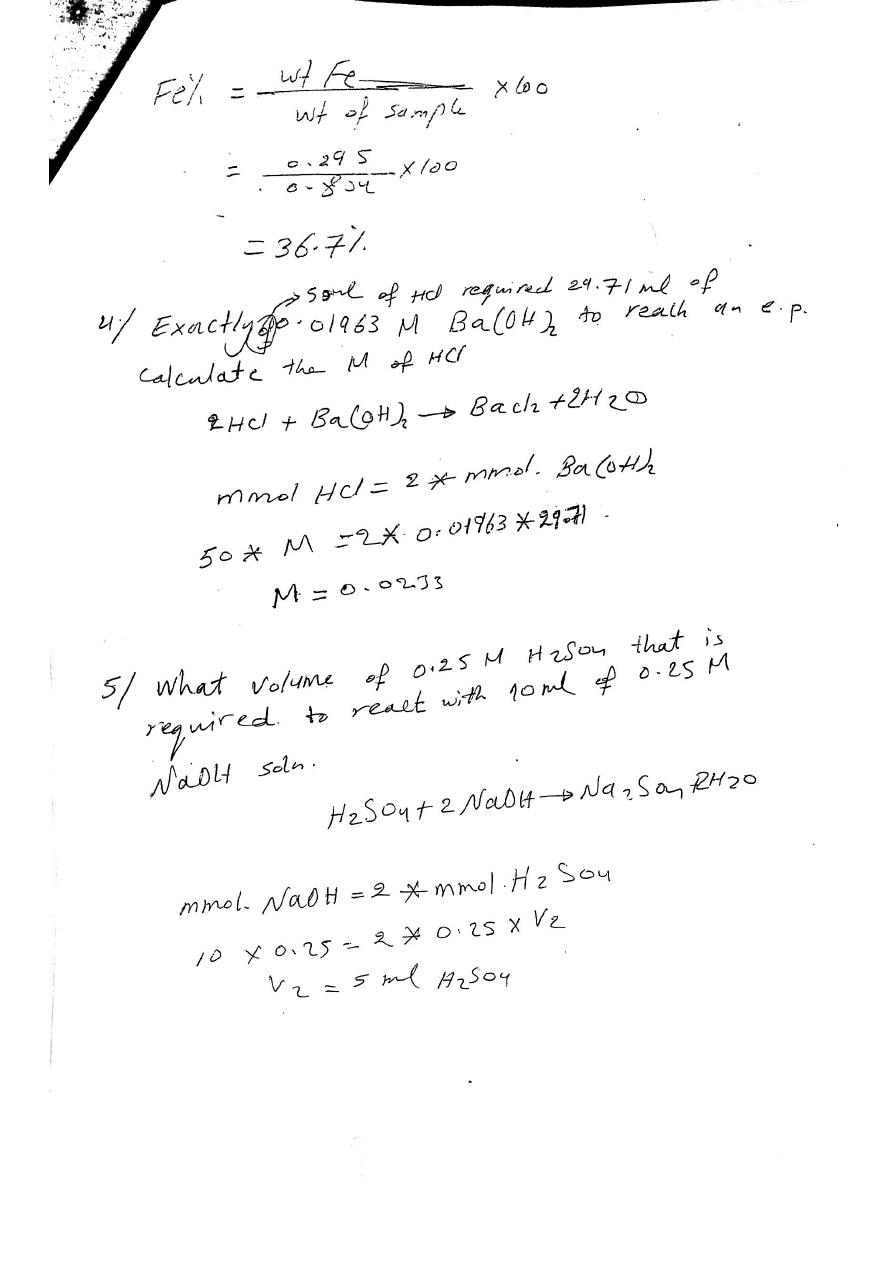 Fe% = wt Fe / wt of sample × 100
= 0.295 / 0.804 × 100
= 36.7%
→ 50ml of Hcl required 29.71 ml of
4/ Exactly 0.01963 M Ba(OH)2 to reach an e.p.
Calculate the M of HCl
2HCl + Ba(OH)2 → Bacl2 + 2H2O
mmol HCl = 2 * mmol. Ba(OH)2
50 * M = 2 * 0.01963 * 29.71
M = 0.0233
5/ What volume of 0.25 M H2SO4 that is
required to react with 10 ml of 0.25 M
NaOH soln.
H2SO4 + 2 NaOH → Na2SO4 2H2O
mmol. NaOH = 2 * mmol. H2SO4
10 × 0.25 = 2 * 0.25 × V2
V2 = 5 ml H2SO4